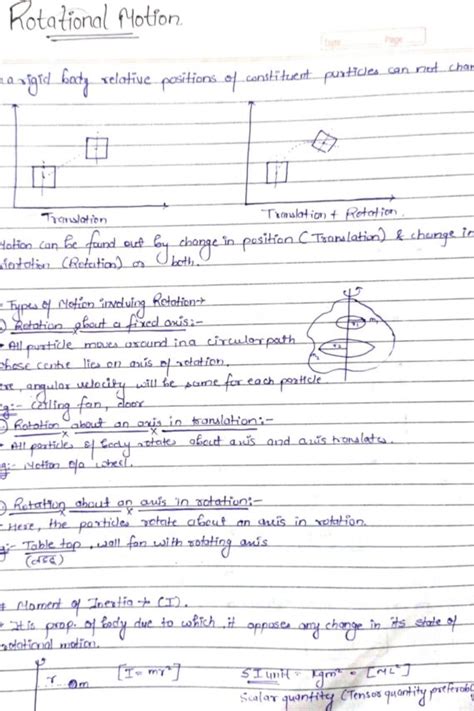 Rotational Motion.
Date Page
a rigid body relative positions of constituent particles can not chan
Translation
Translation + Rotation.
Motion can be found out by change in position (Translation) & change in
orientation (Rotation) or both.
Types of Motion involving Rotation→
Rotation about a fixed axis:-
m₁
r₂
m₂
• All particle moves around in a circular path
whose centre lies on axis of rotation.
ere, angular velocity will be same for each particle.
eg:- Ceiling fan, door
Rotation about an axis in translation:-
• All particles of body rotate about axis and axis translates.
eg:- Motion of a wheel.
Rotation about an axis in rotation:-
- Here, the particles rotate about an axis in rotation.
g:- Table top, wall fan with rotating axis
Moment of Inertia → (I).
• It is prop. of body due to which, it opposes any change in its state of
rotational motion.
r m
[I = mr²]
SI unit = kgm² = [ML²]
Scalar quantity (Tensor quantity preferab